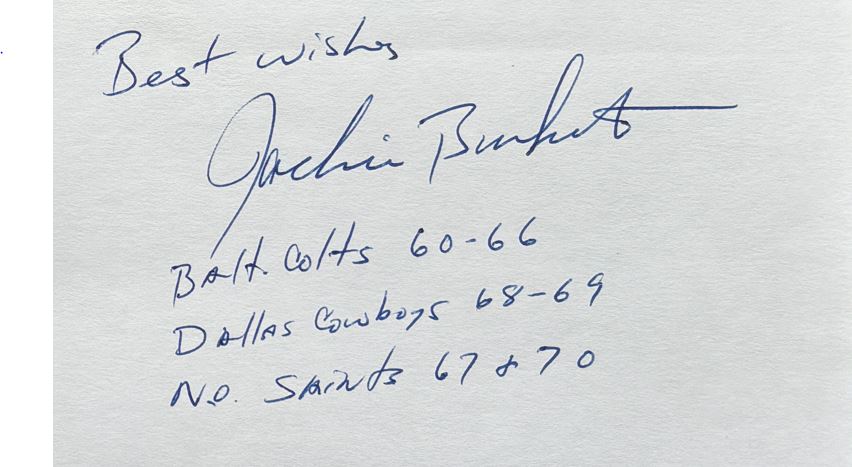 Best wishes
Jackie Burkett
Balt. Colts 60-66
Dallas Cowboys 68-69
N.O. Saints 67 & 70